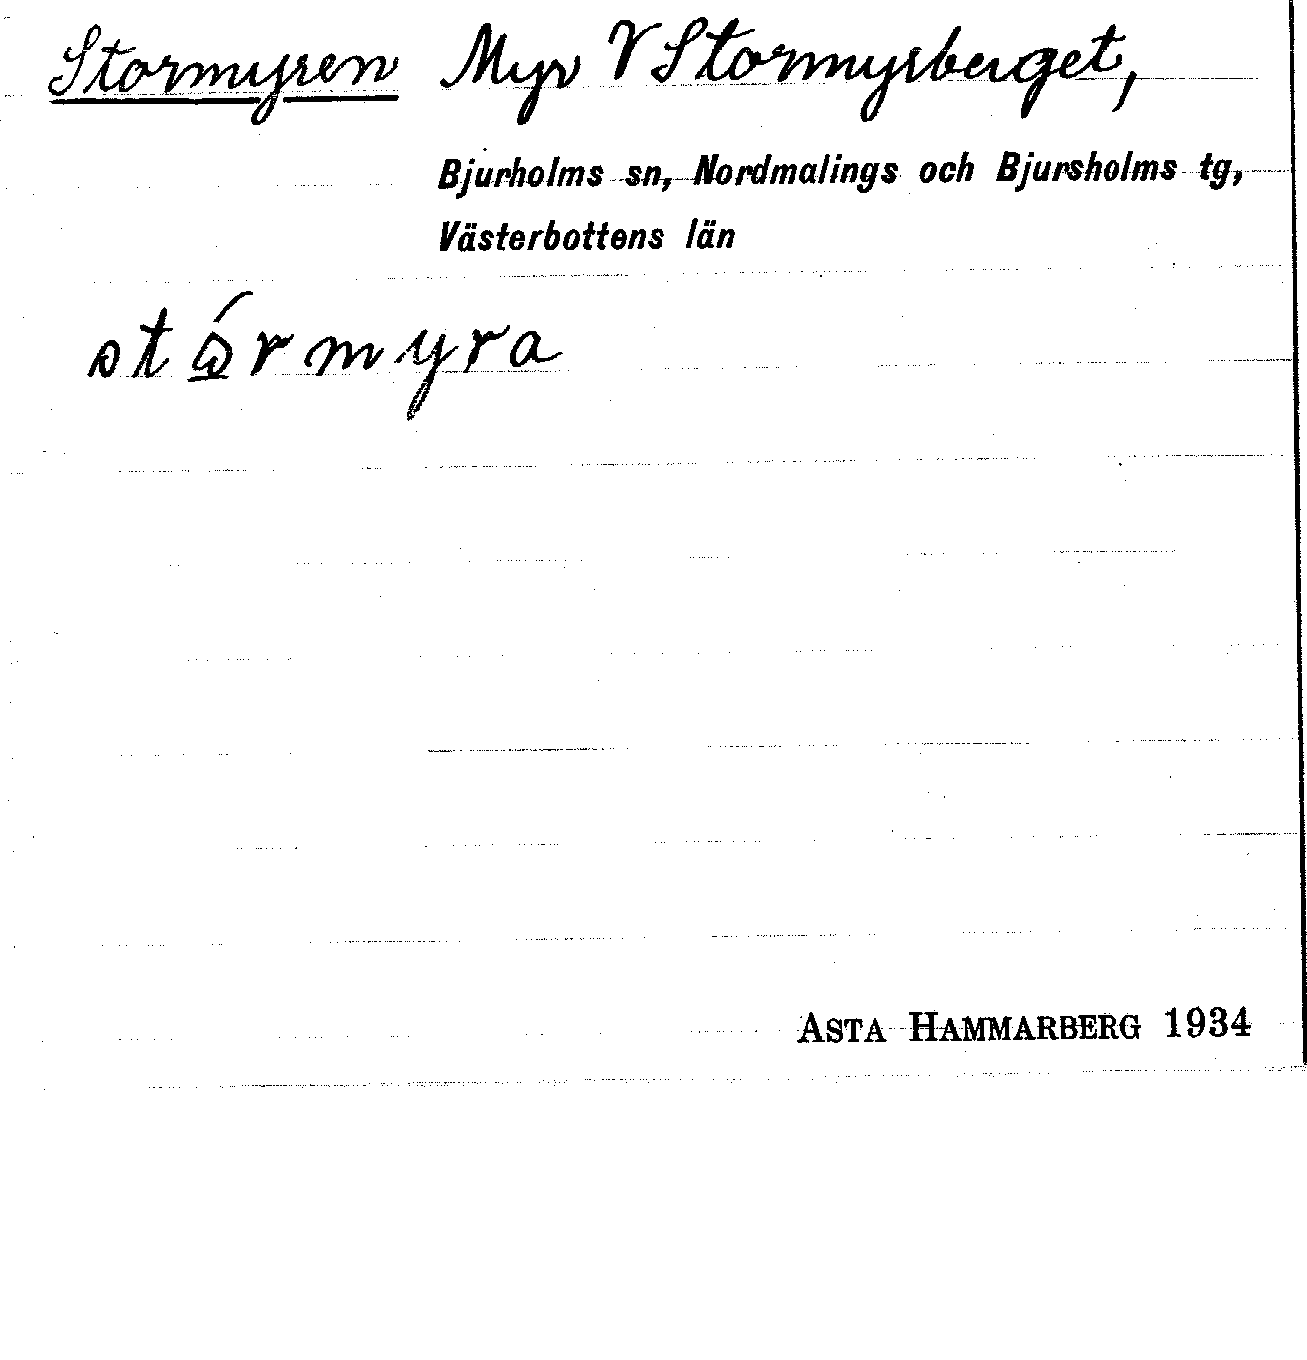 Stormyren Myr V Stormyrberget,
Bjurholms sn, Nordmalings och Bjursholms tg,
Västerbottens län
stώ̲rmyra
ASTA HAMMARBERG 1934